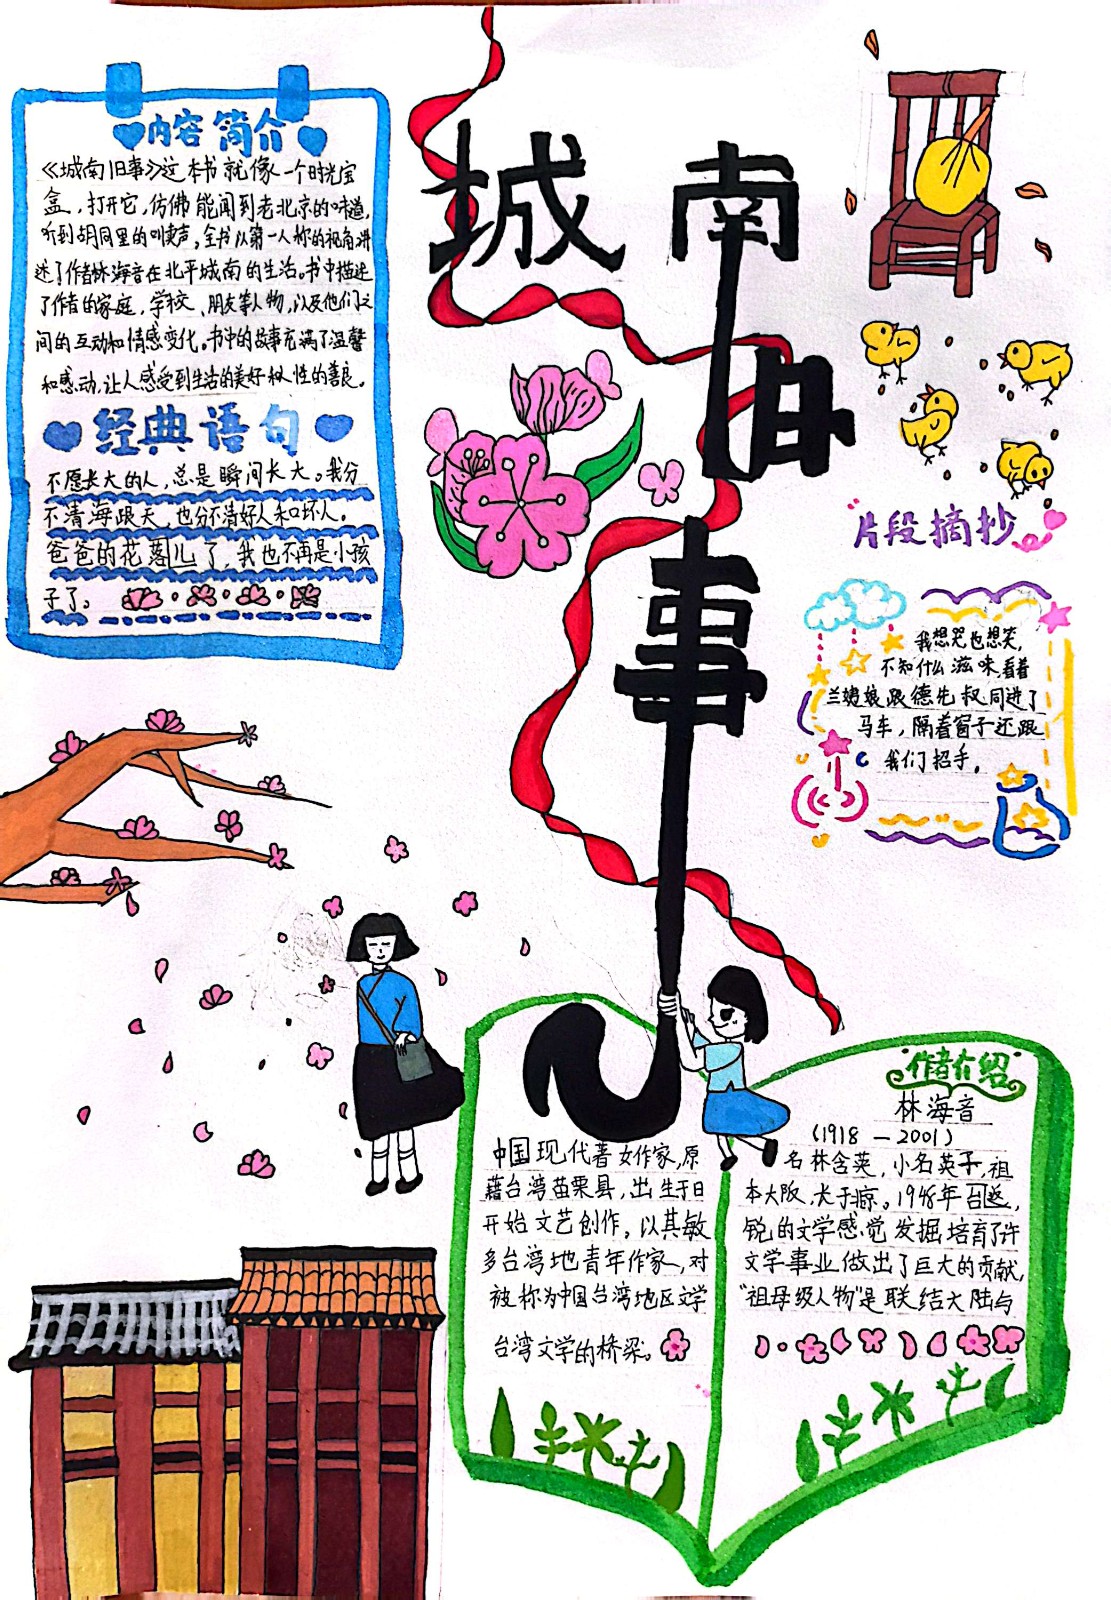 城南旧事
内容简介
《城南旧事》这本书就像一个时光宝
盒，打开它，仿佛能闻到老北京的味道，
听到胡同里的叫卖声。全书以第一人称的视角讲
述了作者林海音在北平城南的生活。书中描述
了作者的家庭、学校、朋友等人物，以及他们之
间的互动和情感变化。书中的故事充满了温馨
和感动，让人感受到生活的美好和人性的善良。
经典语句
不愿长大的人，总是瞬间长大。我分
不清海跟天，也分不清好人和坏人。
爸爸的花落儿了，我也不再是小孩
子了。
片段摘抄
我想哭也想笑，
不知什么滋味，看着
兰姨娘跟德先叔同进了
马车，隔着窗子还跟
我们招手。
作者介绍
林海音
（1918—2001）
中国现代著女作家，原名林含英，小名英子，祖
籍台湾苗栗县，出生于日本大阪，长于京。1948年召返，
开始文艺创作。以其敏锐的文学感觉发掘培育了许
多台湾地青年作家，对文学事业做出了巨大的贡献，
被称为中国台湾地区文学“祖母级人物”是联结大陆与
台湾文学的桥梁。